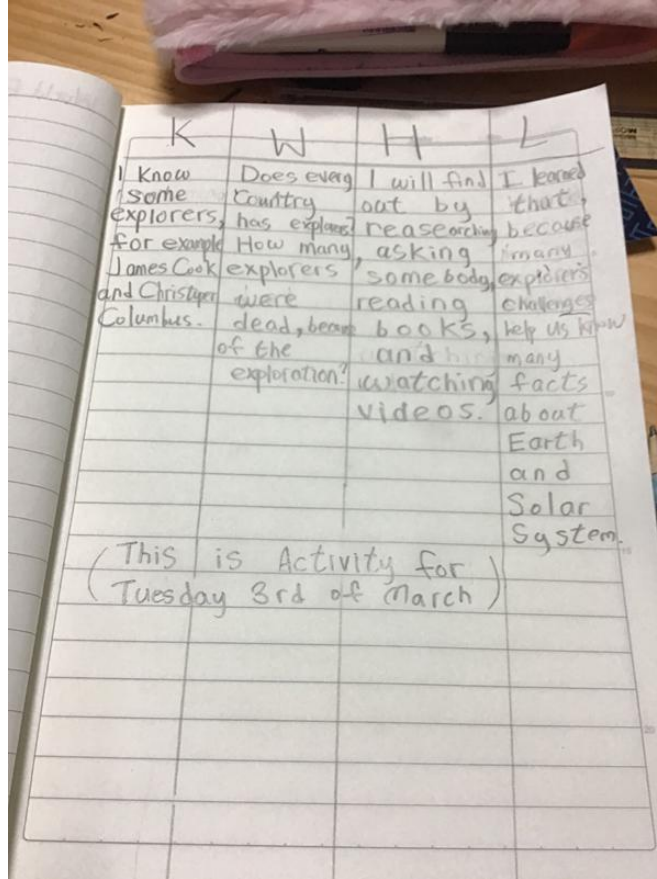 K W H L
I Know
some
explorers,
for example
James Cook
and Christoper
Columbus.
Does every
Country
has
How many
explorers
were
dead,
of the
exploration?
I will find
out by
reasearching,
asking
somebody,
reading
books,
and
watching
videos.
I learned
that,
because
many
explorers
challenges
help us know
many
facts
about
Earth
and
Solar
System.
(This is Activity for
Tuesday 3rd of March)